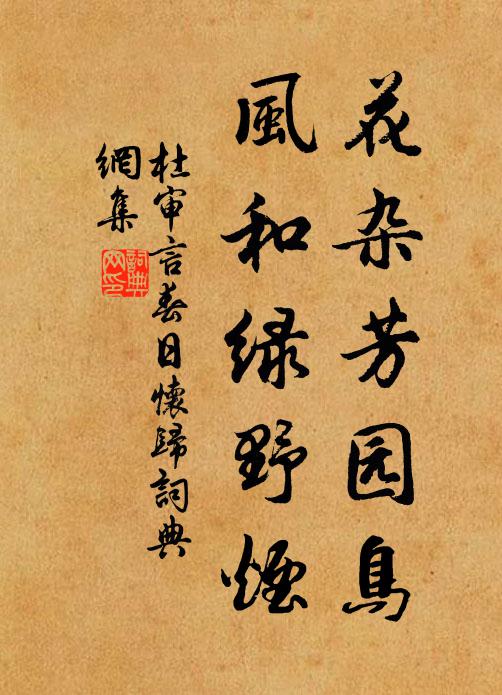 花杂芳园鳥
風和緑野煙
杜审言春日懷歸詞典
網集
詞典
网印